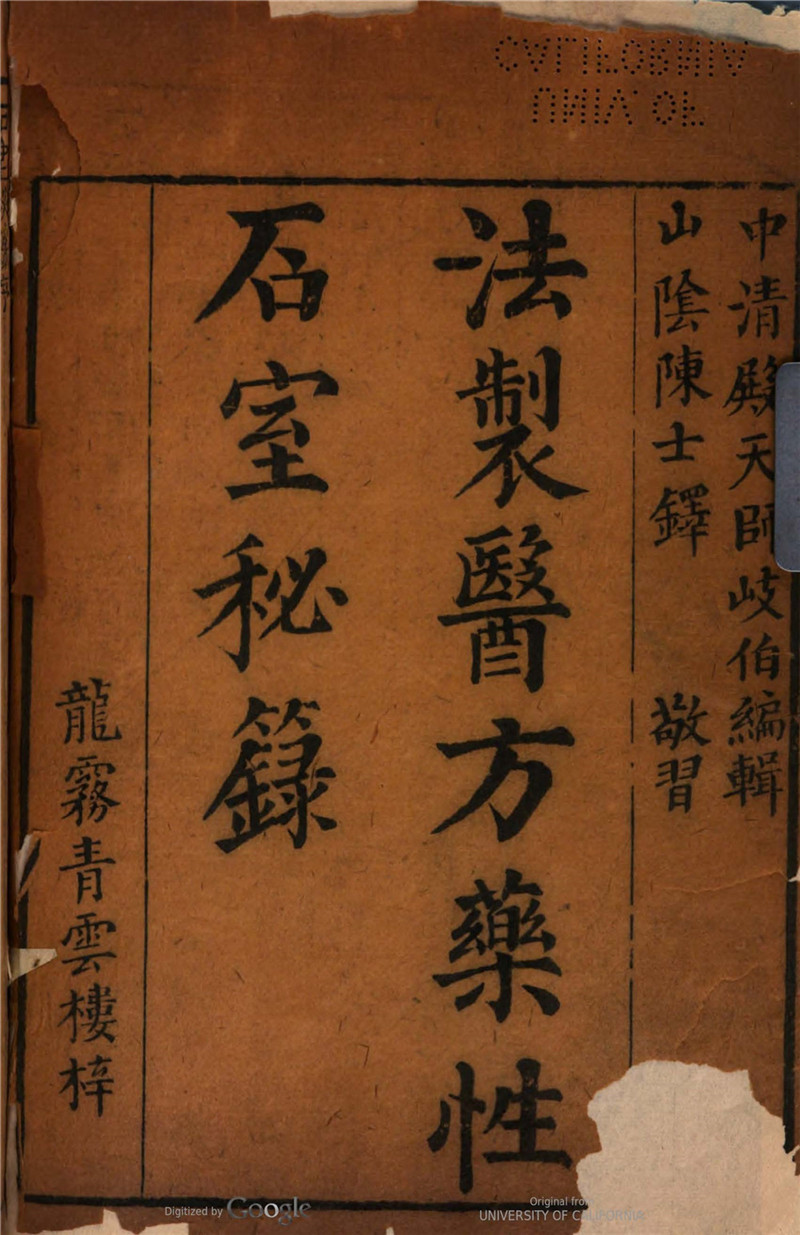 中清殿天師岐伯編輯
山陰陳士鐸 敬習
法製醫方藥性
石室秘籙
龍霧青雲樓梓
UNIV. OF
CALIFORNIA
Digitized by Google
Original from
UNIVERSITY OF CALIFORNIA